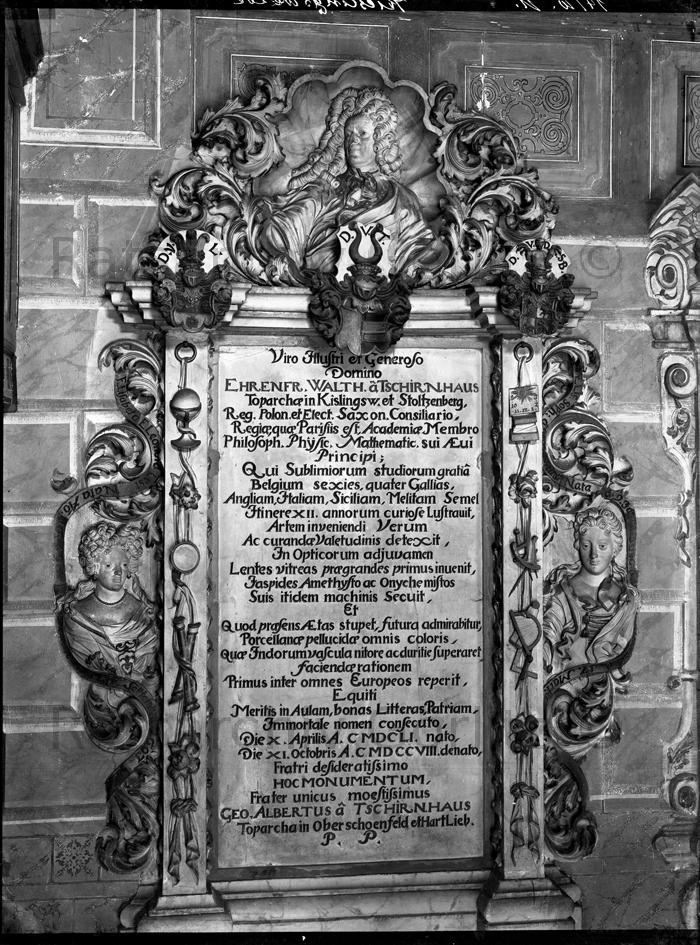 D. V. L.
D. V. T.
Viro Illustri et Generoso
Domino
EHRENFR. WALTH. â TSCHIRNHAUS
Toparcha in Kislingsw. et Stoltzenberg,
Reg. Polon. et Elect. Saxon. Consiliario,
Regiæque Parisiis est Academiæ Membro
Philosoph. Physic. Mathematic. sui Ævi
Principi;
Qui Sublimiorum studiorum gratiâ
Belgium sexies, quater Gallias,
Angliam, Italiam, Siciliam, Melitam Semel
Itinere XII. annorum curiose Lustrauit,
Artem inveniendi Verum
Ac curandæ Valetudinis detexit,
In Opticorum adjuvamen
Lentes vitreas prægrandes primus inuenit,
Iaspides Amethysto ac Onyche mistos
Suis itidem machinis Secuit,
Et
Quod præsens Ætas stupet, futura admirabitur,
Porcellanæ pellucidæ omnis coloris,
Quæ Indorum vascula nitore ac duritie superaret
faciendæ rationem
Primus inter omnes Europeos reperit,
Equiti
Meritis in Aulam, bonas Litteras, Patriam,
Immortale nomen consecuto,
Die X. Aprilis A. C MDCLI. nato,
Die XI. Octobris A. C MDCCVIII. denato,
Fratri desideratissimo
HOC MONUMENTUM,
Frater unicus moestissimus
GEO. ALBERTUS â TSCHIRNHAUS
Toparcha in Oberschoenfeld et Hart Lieb.
P. P.